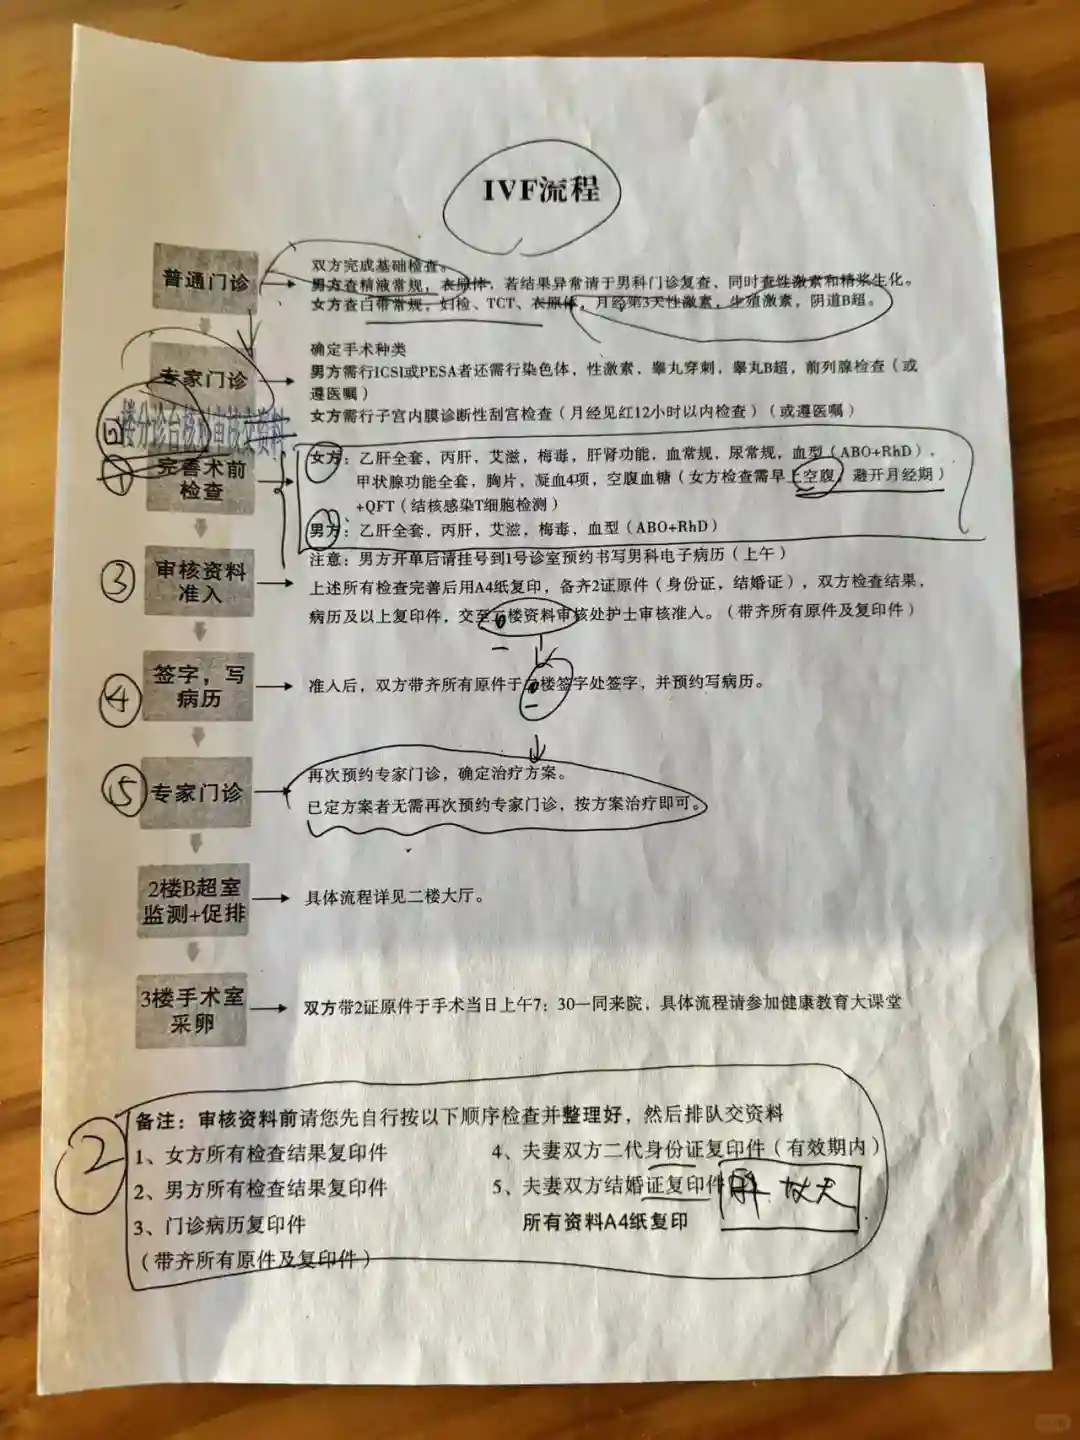 IVF流程
普通门诊
双方完成基础检查。
男方查精液常规，衣原体，若结果异常请于男科门诊复查、同时查性激素和精浆生化。
女方查白带常规，妇检、TCT、衣原体，月经第3天性激素，生殖激素，阴道B超。
专家门诊
确定手术种类
男方需行ICSI或PESA者还需行染色体，性激素，睾丸穿刺，睾丸B超，前列腺检查（或
遵医嘱）
女方需行子宫内膜诊断性刮宫检查（月经见红12小时以内检查）（或遵医嘱）
楼分诊台核对审核交资料
①
完善术前
检查
女方：乙肝全套，丙肝，艾滋，梅毒，肝肾功能，血常规，尿常规，血型（ABO+RhD），
甲状腺功能全套，胸片，凝血4项，空腹血糖（女方检查需早上空腹，避开月经期）
+QFT（结核感染T细胞检测）
男方：乙肝全套，丙肝，艾滋，梅毒，血型（ABO+RhD）
注意：男方开单后请挂号到1号诊室预约书写男科电子病历（上午）
③
审核资料
准入
上述所有检查完善后用A4纸复印，备齐2证原件（身份证，结婚证），双方检查结果，
病历及以上复印件，交至楼资料审核处护士审核准入。（带齐所有原件及复印件）
④
签字，写
病历
准入后，双方带齐所有原件于楼签字处签字，并预约写病历。
⑤
专家门诊
再次预约专家门诊，确定治疗方案。
已定方案者无需再次预约专家门诊，按方案治疗即可。
2楼B超室
监测+促排
具体流程详见二楼大厅。
3楼手术室
采卵
双方带2证原件于手术当日上午7：30一同来院，具体流程请参加健康教育大课堂
②
备注：审核资料前请您先自行按以下顺序检查并整理好，然后排队交资料
1、女方所有检查结果复印件
2、男方所有检查结果复印件
3、门诊病历复印件
（带齐所有原件及复印件）
4、夫妻双方二代身份证复印件（有效期内）
5、夫妻双方结婚证复印件
所有资料A4纸复印